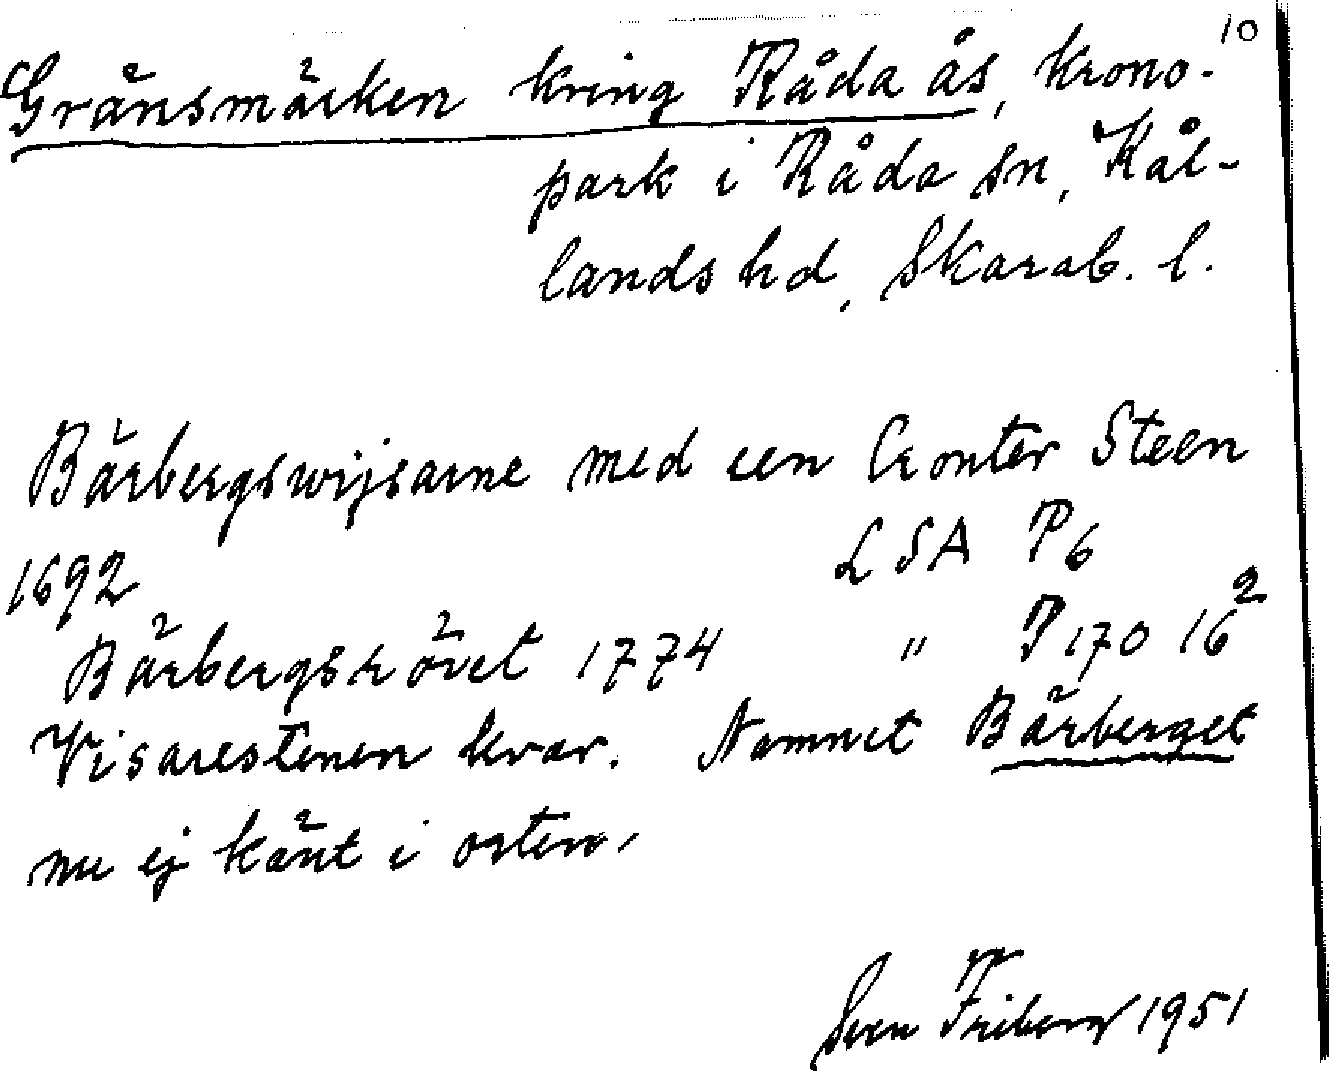 10
Gränsmärken kring Råda ås, krono-
park i Råda sn, Kål-
lands hd, Skarab. l.
Bärbergswijsarne med een Cronter Steen
1692 LSA P6
Bärbergsrövet 1774 " P170 16²
Visarestenen kvar. Namnet Bärberget
nu ej känt i orten.
Sven Friberg 1951